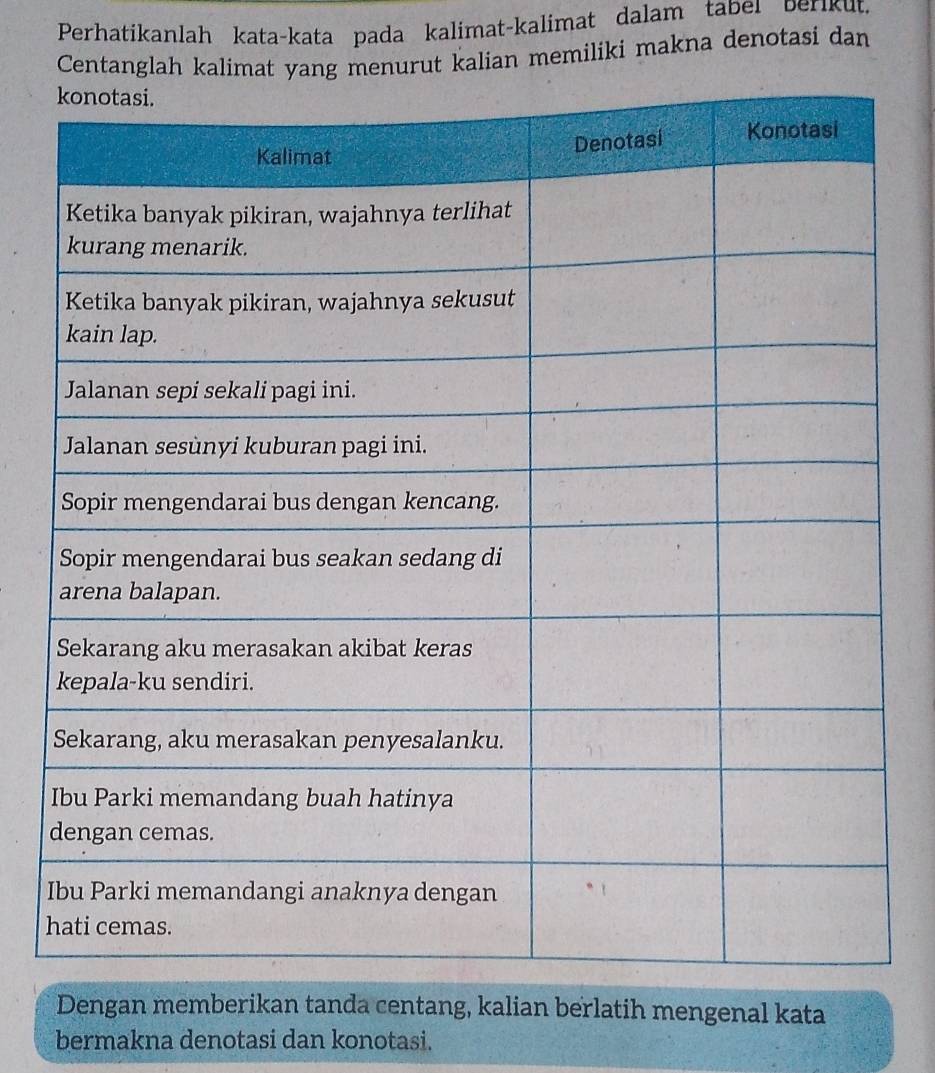 Perhatikanlah kata-kata pada kalimat-kalimat dalam tabel berikut.
Centanglah kalimat yang menurut kalian memiliki makna denotasi dan
konotasi.
Kalimat Denotasi Konotasi
Ketika banyak pikiran, wajahnya terlihat
kurang menarik.
Ketika banyak pikiran, wajahnya sekusut
kain lap.
Jalanan sepi sekali pagi ini.
Jalanan sesunyi kuburan pagi ini.
Sopir mengendarai bus dengan kencang.
Sopir mengendarai bus seakan sedang di
arena balapan.
Sekarang aku merasakan akibat keras
kepala-ku sendiri.
Sekarang, aku merasakan penyesalanku.
Ibu Parki memandang buah hatinya
dengan cemas.
Ibu Parki memandangi anaknya dengan
hati cemas.
Dengan memberikan tanda centang, kalian berlatih mengenal kata
bermakna denotasi dan konotasi.